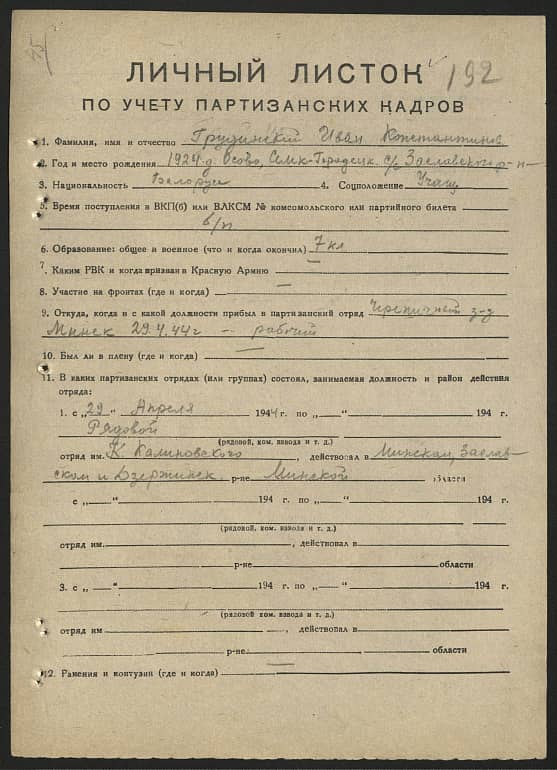 45
ЛИЧНЫЙ ЛИСТОК 192
ПО УЧЕТУ ПАРТИЗАНСКИХ КАДРОВ
1. Фамилия, имя и отчество Грудинский Иван Константинов
2. Год и место рождения 1924 д. Осово, Семк-Городецк. с/с Заславского р-н
3. Национальность Белорус 4. Соцположение Учащ
5. Время поступления в ВКП(б) или ВЛКСМ № комсомольского или партийного билета
б/п
6. Образование: общее и военное (что и когда окончил) 7 кл
7. Каким РВК и когда призван в Красную Армию —
8. Участие на фронтах (где и когда) —
9. Откуда, когда и с какой должности прибыл в партизанский отряд з-д
Минск 29.4.44г — рабочий
10. Был ли в плену (где и когда) —
11. В каких партизанских отрядах (или группах) состоял, занимаемая должность и район действия
отряда:
1. с „29“ Апреля 1944 г. по „—“ 194 г.
Рядовой
(рядовой, ком. взвода и т. д.)
отряд им. К. Калиновского, действовал в Минском, Заслав-
ском и Дзержинск. р-не Минской области
с „—“ 194 г. по „—“ 194 г.
(рядовой, ком. взвода и т. д.)
отряд им. , действовал в
р-не области
3. с „—“ 194 г. по „—“ 194 г.
(рядовой, ком. взвода и т. д.)
отряд им , действовал в
р-не области
12. Ранения и контузии (где и когда) —